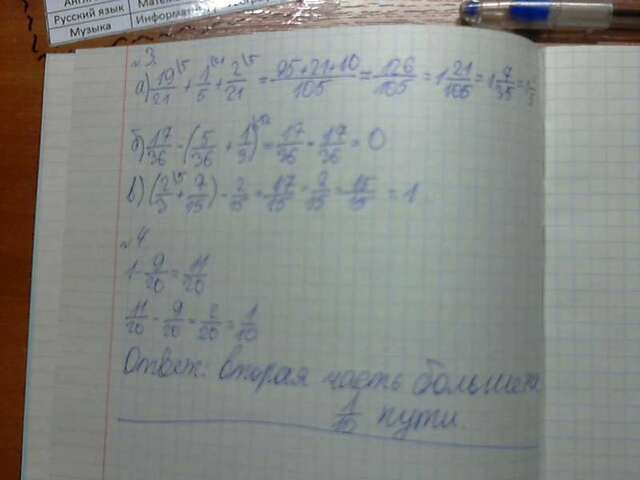 Русский язык
Музыка
№3.
а) 19/21 + 1/5 + 2/21 = 95+21+10/105 = 126/105 = 1 21/105 = 1 7/35 = 1
б) 17/36 - (5/36 + 1/3) = 17/36 - 17/36 = 0
в) (2/3 + 7/15) - 2/15 = 17/15 - 2/15 = 15/15 = 1
№4
1 - 9/20 = 11/20
11/20 - 9/20 = 2/20 = 1/10
Ответ: вторая часть больше на
1/10 пути.